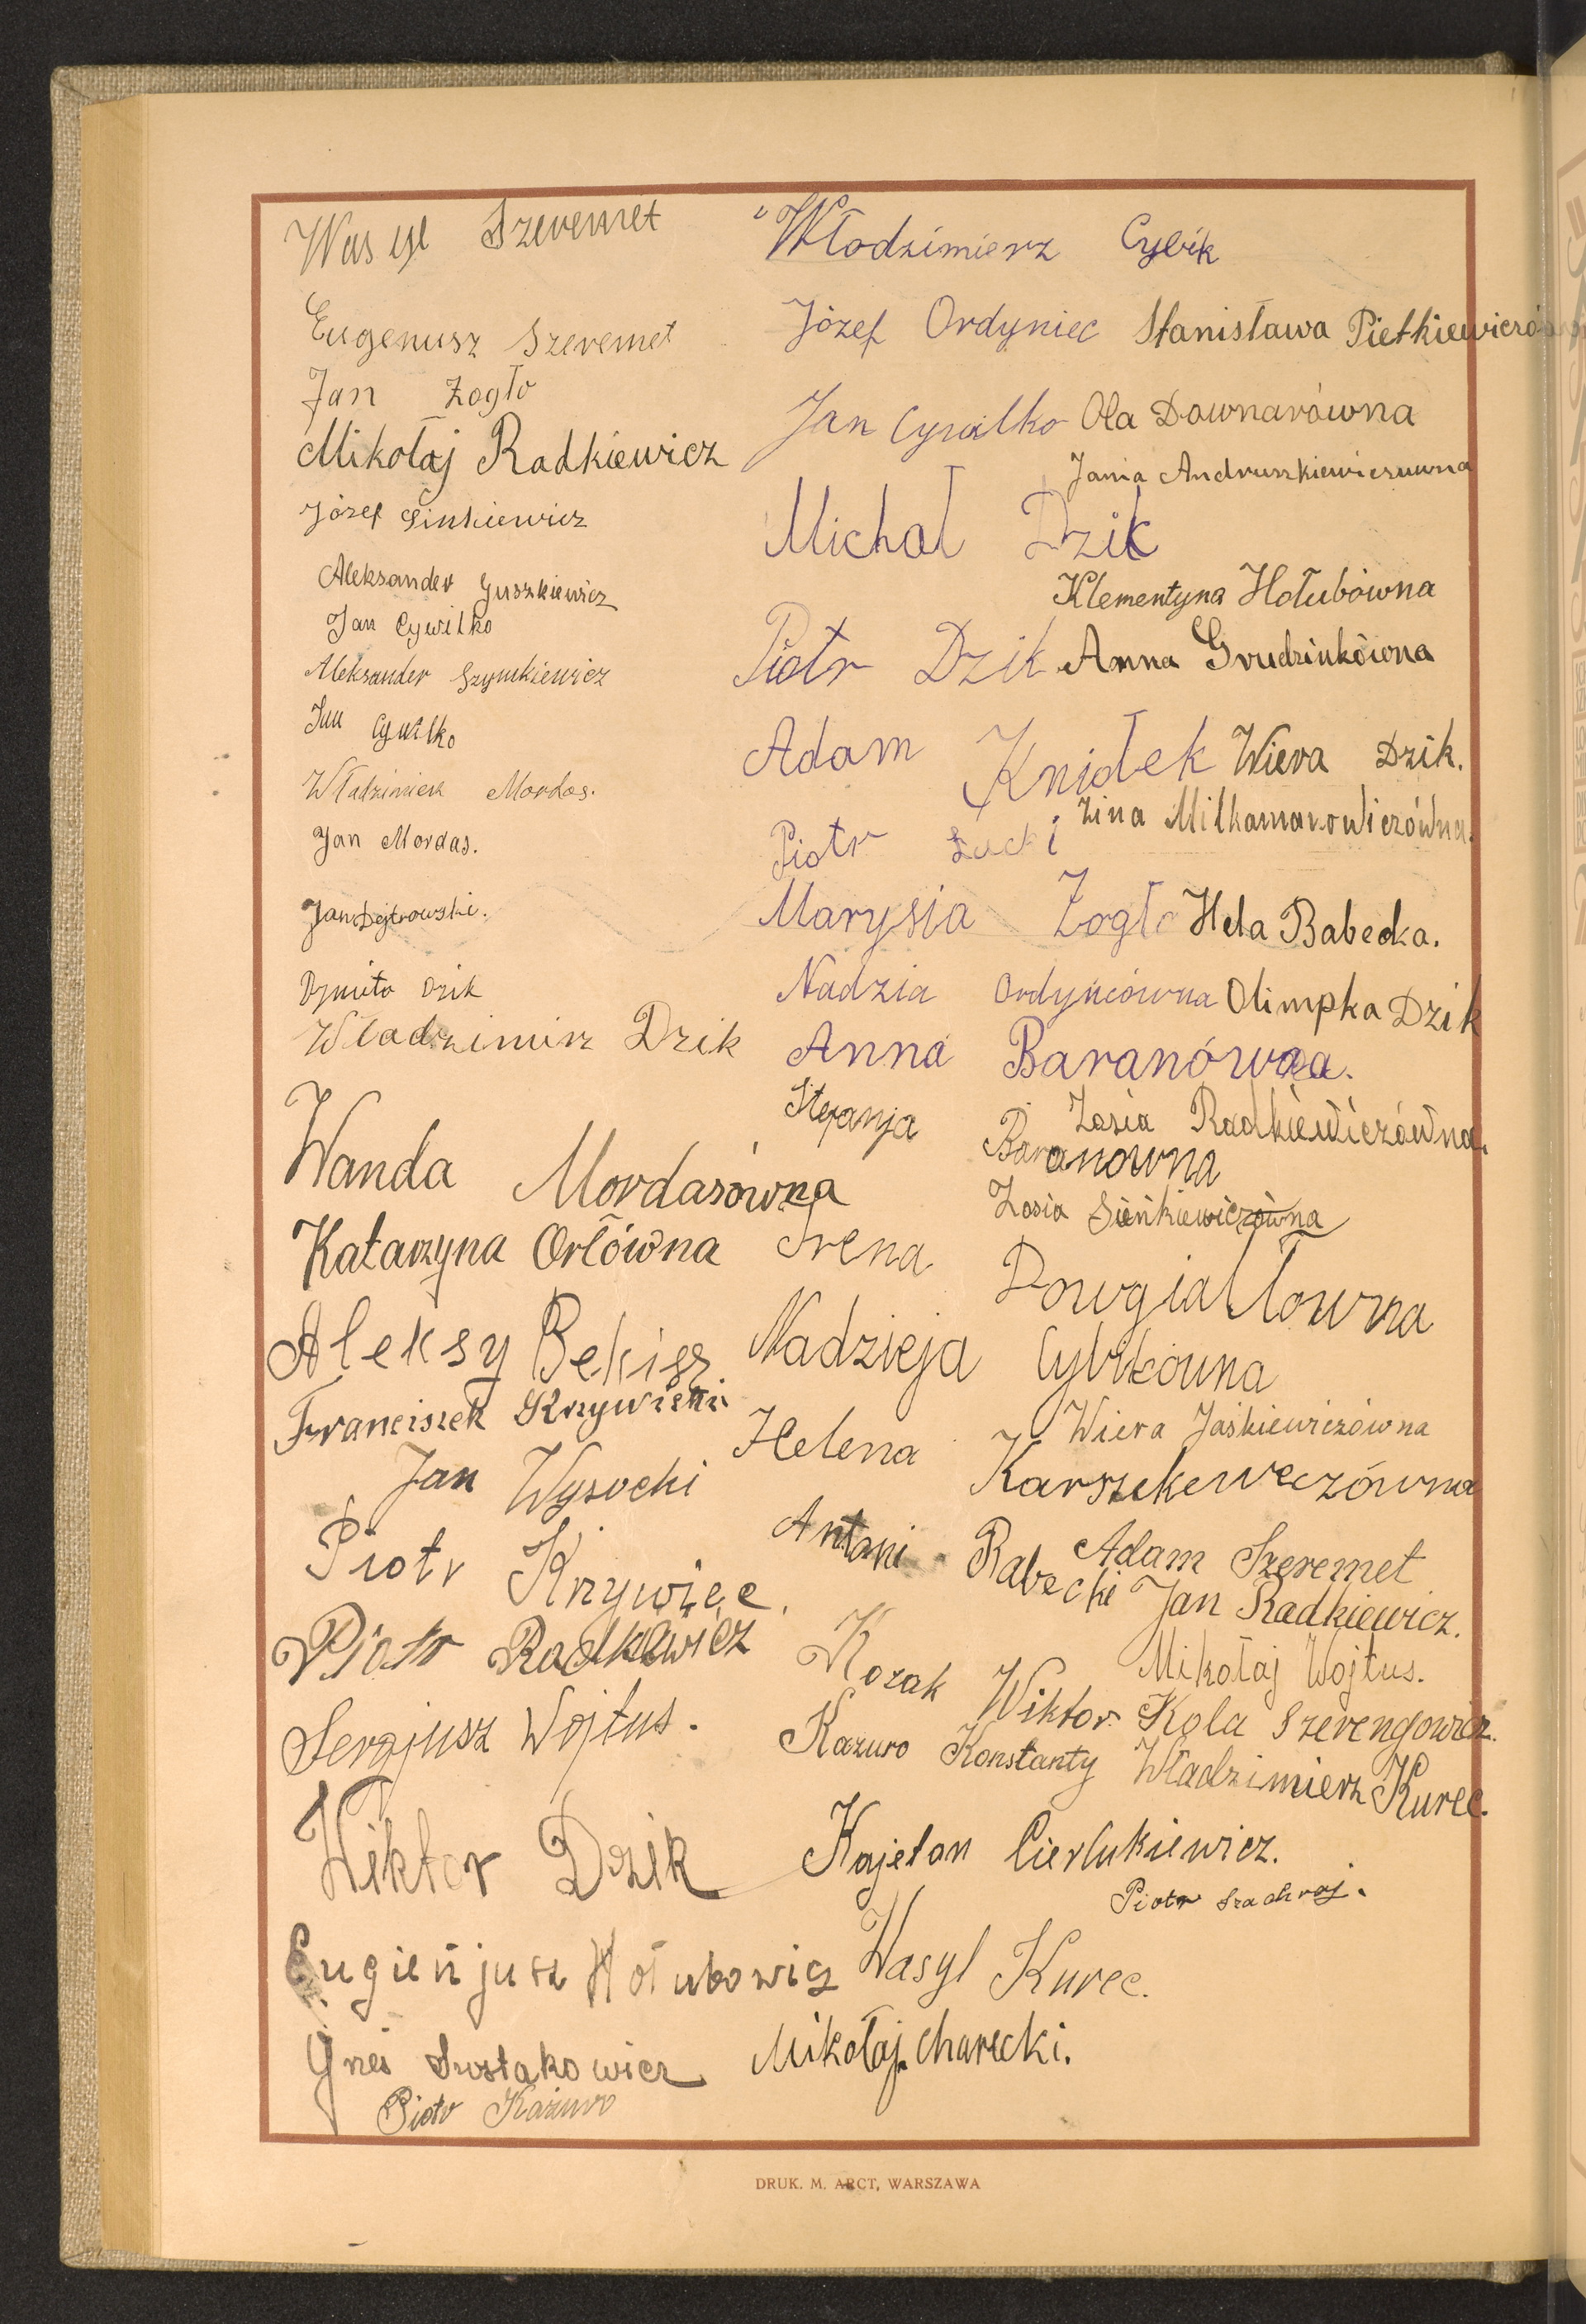 Wasyl Szeremet
Eugenusz Szeremet
Jan Żogło
Mikołaj Radkiewicz
Józef Sinkiewicz
Aleksander Juszkiewicz
Jan Cywilko
Aleksander Szymkiewicz
Jan Cywilko
Władzimierz Mordas.
Jan Mordas.
Jan Dejtrowski.
Dymitr Dzik
Władzimirz Dzik
Wanda Mordasówna
Katarzyna Orłówna
Aleksy Bekisz
Franciszek Krzywicki
Jan Wysocki
Piotr Krzywiec.
Piotr Radkiewicz
Sergjusz Wojtus.
Wiktor Dzik
Eugieńjusz Hołubowicz
Szostakowicz
Piotr Kazuro
Włodzimierz Cybik
Józef Ordyniec Stanisława
Jan Cywilko Ola Downarówna
Jania Andruszkiewiczuwna
Michał Dzik
Klementyna Hołubówna
Piotr Dzik Anna Grudzinkówna
Adam Knidek Wiera Dzik.
Piotr Łucki Zina
Marysia Żogło Hela Babecka.
Nadzia Ordyncówna Olimpka Dzik
Anna Baranówna.
Zosia Radkiewiczówna.
Stefanja Baranowna
Zosia Sieńkiewiczówna
Irena Dowgiałłowna
Nadzieja Cybikówna
Wiera Jaśkiewiczówna
Helena Karszkeweczówna
Adam Szeremet
Antoni Rabecki Jan Radkiewicz.
Mikołaj Wojtus.
Kozak Wiktor. Kola Szerengowicz.
Kazuro Konstanty Władzimierz Kurec.
Kajetan Cierlukiewicz.
Piotr Szachraj.
Wasyl Kurec.
Mikołaj Charecki.
DRUK. M. ARCT, WARSZAWA